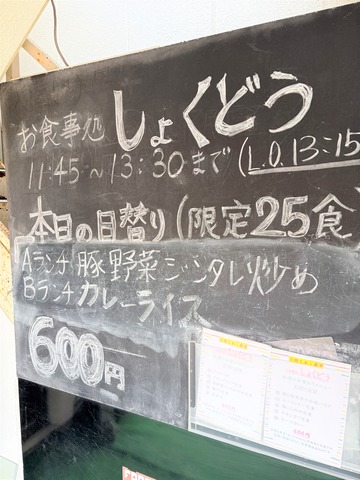 お食事処 しょくどう
11:45～13:30まで (L.O.13:15
本日の日替り (限定25食
Aランチ 豚野菜ジンタレ炒め
Bランチ カレーライス
600円